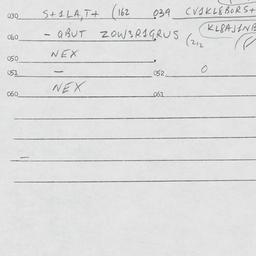 030 S+1LA,T+ (162 039 CV1KL8BORS+
060 - QBUT ZOW3R1GRUS (212 KL8AJ1NB
050 NEX
051 — 052 0
060 NEX 061